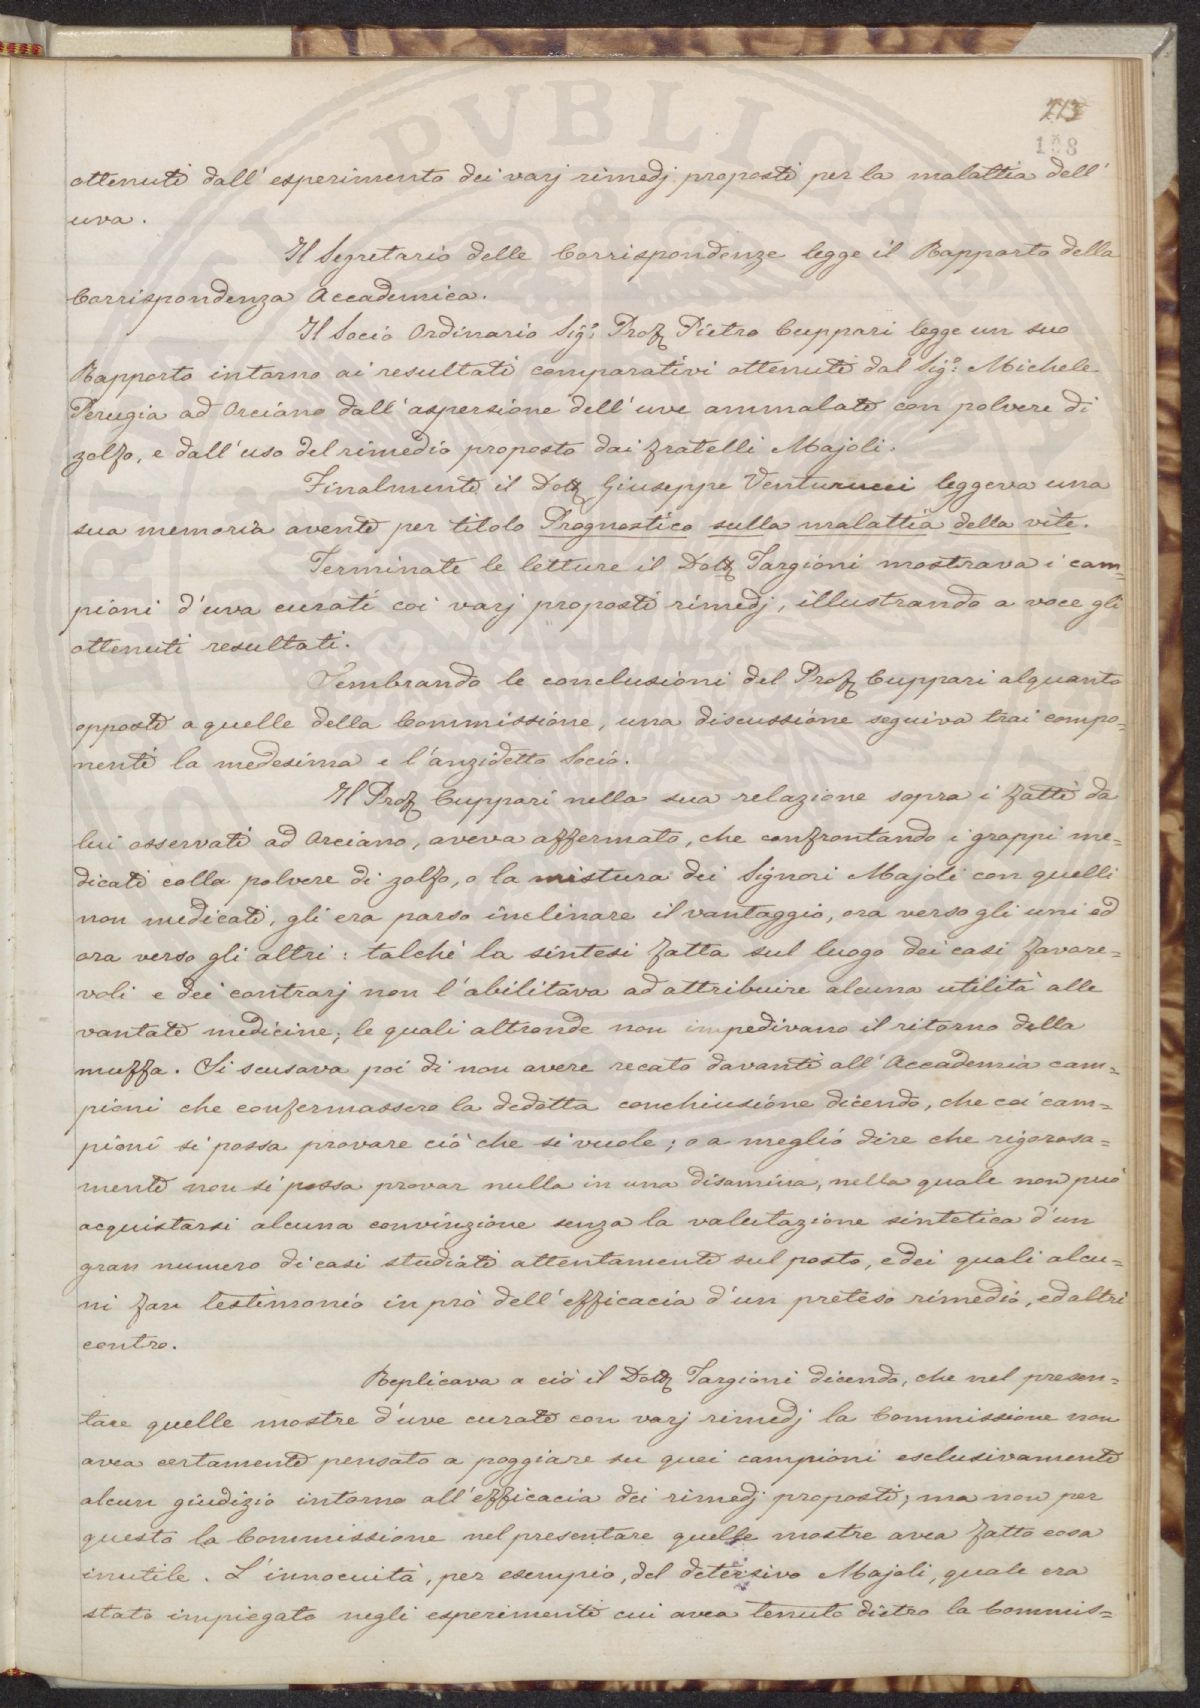 113
108
ottenuti dall'esperimento dei varj rimedj proposti per la malattia dell'
uva.
Il Segretario delle Corrispondenze legge il Rapporto della
Corrispondenza Accademica.
Il Socio Ordinario Sig.r Prof. Pietro Cuppari legge un suo
Rapporto intorno ai resultati comparativi ottenuti dal Sig.r Michele
Perugia ad Orciano dall'aspersione dell'uve ammalate con polvere di
zolfo, e dall'uso del rimedio proposto dai fratelli Majoli.
Finalmente il Dott. Giuseppe Venturucci leggeva una
sua memoria avente per titolo Prognostico sulla malattia della vite.
Terminate le letture il Dott. Targioni mostrava i cam=
pioni d'uva curati coi varj proposti rimedj, illustrando a voce gli
ottenuti resultati.
Sembrando le conclusioni del Prof. Cuppari alquanto
opposte a quelle della Commissione, una discussione seguiva trai compo=
nenti la medesima e l'anzidetto Socio.
Il Prof. Cuppari nella sua relazione sopra i fatti da
lui osservati ad Orciano, aveva affermato, che confrontando i grappi me=
dicati colla polvere di zolfo, o la mistura dei Signori Majoli con quelli
non medicati, gli era parso inclinare il vantaggio, ora verso gli uni ed
ora verso gli altri: talchè la sintesi fatta sul luogo dei casi favore=
voli e dei contrarj non l'abilitava ad attribuire alcuna utilità alle
vantate medicine; le quali altronde non impedivano il ritorno della
muffa. Si scusava poi di non avere recato davanti all'Accademia cam=
pioni che confermassero la dedotta conchiusione dicendo, che coi cam=
pioni si possa provare ciò che si vuole; o a meglio dire che rigorosa=
mente non si possa provar nulla in una disamina, nella quale non può
acquistarsi alcuna convinzione senza la valutazione sintetica d'un
gran numero di casi studiati attentamente sul posto, e dei quali alcu=
ni fan testimonio in prò dell'efficacia d'un preteso rimedio, ed altri
contro.
Replicava a ciò il Dott. Targioni dicendo, che nel presen=
tare quelle mostre d'uve curate con varj rimedj la Commissione non
avea certamente pensato a poggiare su quei campioni esclusivamente
alcun giudizio intorno all'efficacia dei rimedj proposti; ma non per
questo la Commissione nel presentare quelle mostre avea fatto cosa
inutile. L'innocuità, per esempio, del detersivo Majoli, quale era
stato impiegato negli esperimenti cui avea tenuto dietro la Commis=